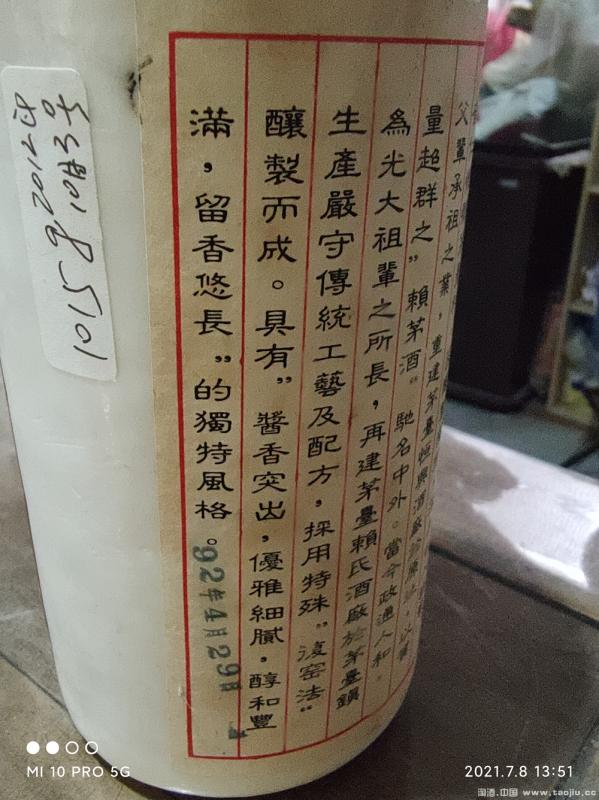 父輩承祖之業，重建茅臺恒興酒廠
量超群之"賴茅酒"馳名中外。當今政通人和，
為光大祖輩之所長，再建茅臺賴氏酒廠於茅臺鎮
生產嚴守傳統工藝及配方，採用特殊"復窑法"
釀製而成。具有"醬香突出，優雅細膩，醇和豐
滿，留香悠長"的獨特風格。
92年4月29日
10158g2012
MI 10 PRO 5G
2021.7.8 13:51
淘酒.中国 www.taojiu.cc